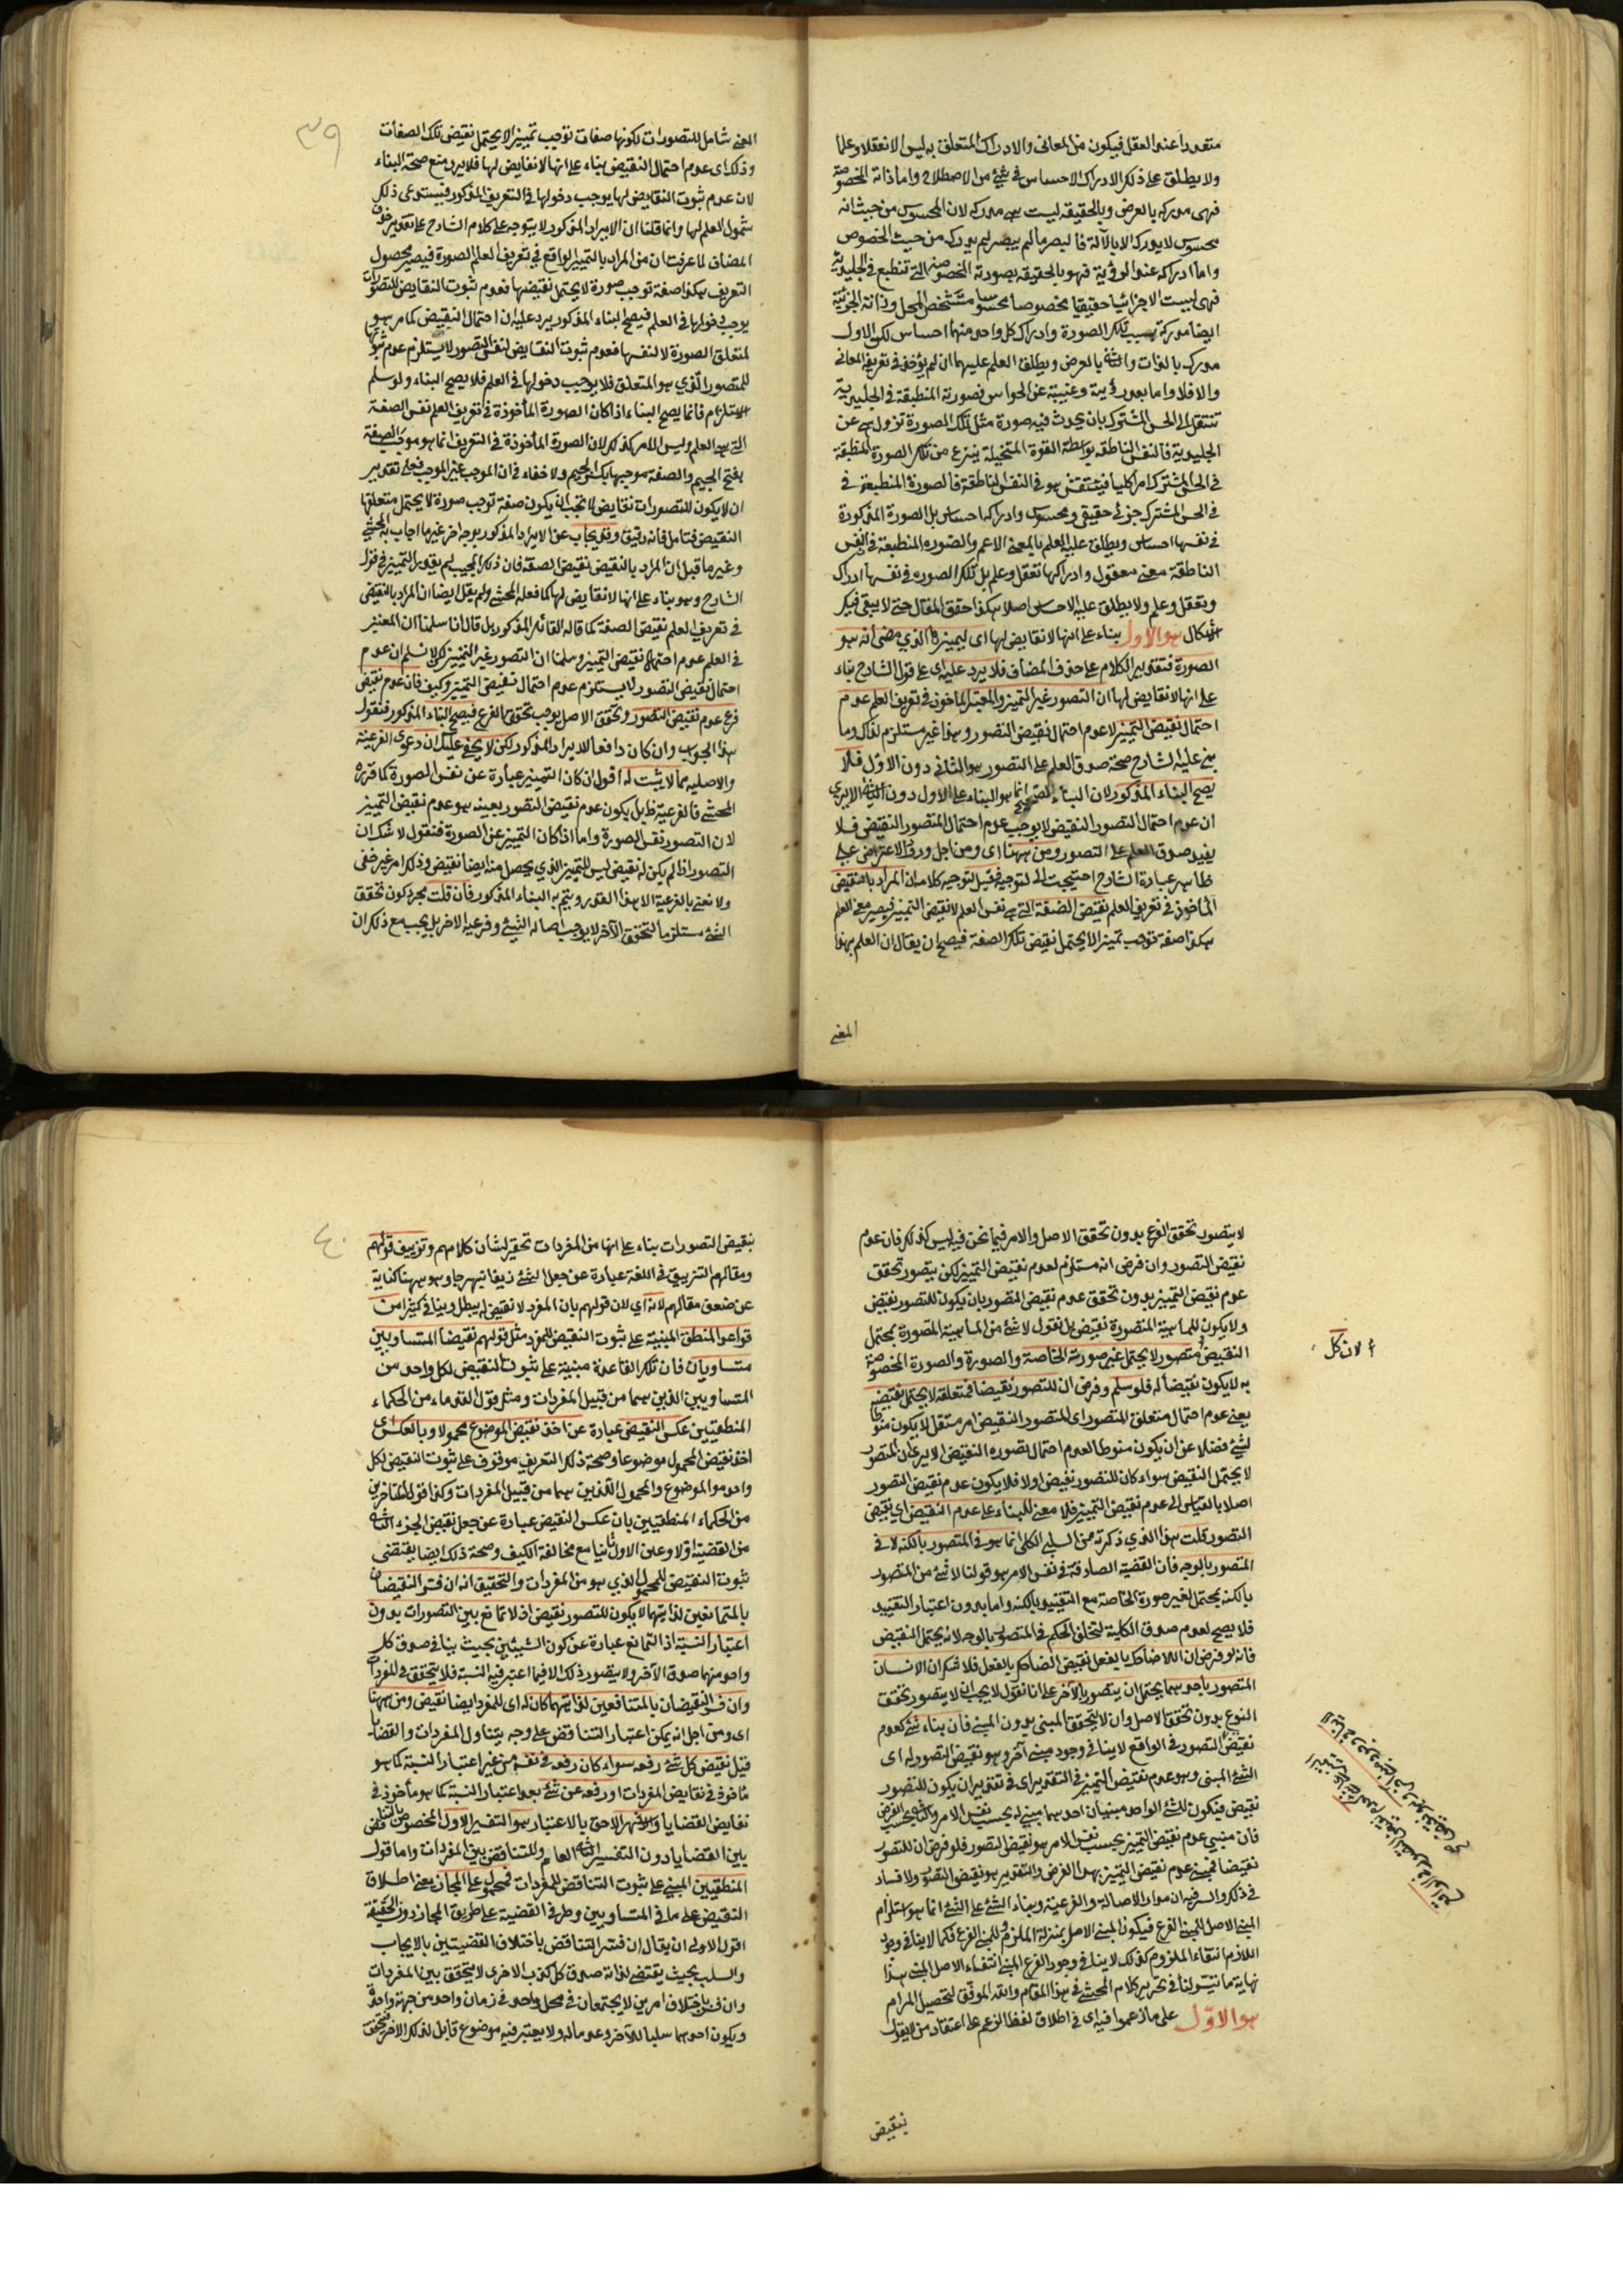 متعددا عند العقل فيكون من المعانى والادراك المتعلق به ليس الا تعقلا وعلما
ولا يطلق على ذلك الادراك الاحساس فى شئ من الاصطلاح واما ذاته المخصوصة
فهى مدركه بالعرض وبالحقيقه ليست هى مدركه لان المحسوس من حيث انه
محسوس لا يدرك الا بالآلة فالبصر ما لم يبصر لم يدركه من حيث الخصوص
واما ادراكه عند الرؤية فهو بالحقيقه بصورته المخصوصه التى تنطبع فى الجليدية
فهى ليست الا جزائيا حقيقيا مخصوصا محسوسا متشخص المحل وذاته الجزئية
ايضا مدركة بسبب تلك الصورة وادراك كل واحد منهما احساس لكن الاول
مدرك بالذات والثانى بالعرض ويطلق العلم عليهما ان لم يؤخذ فى تعريفه المعانى
والا فلا واما بعد رؤيته وغيبته عن الحواس فصورته المنطبقة فى الجليدية
تنتقل الى الحس المشترك بان يحدث فيه صورة مثل تلك الصورة تزول هى عن
الجليدية فالنفس الناطقه بواسطة القوة المتخيلة ينتزع من تلك الصورة المنطبقة
فى الحس المشترك امرا كليا فينتقش هو فى النفس الناطقة فالصورة المنطبعة فى
فى الحس المشترك جزئى حقيقى ومحسوس وادراكه احساس بل الصورة المذكورة
فى نفسها احساس ويطلق عليه العلم بالمعنى الاعم والصوره المنطبعة فى النفس
الناطقة معنى معقول وادراكها تعقل وعلم بل تلك الصوره فى نفسها ادراك
وتعقل وعلم ولا يطلق عليه الاحساس اصلا هكذا حقق المقال حتى لا يبقى فيك
اشكال هو الاول بناء على انها لا نقايض لها اى لتمييزها الذى مضى انه هو
الصورة فتقدير الكلام على حذف المضاف فلا يرد عليه اى على قول الشارح بناء
على انها لا نقايض لها ان التصور غير التمييز والمعتبر المأخوذ فى تعريف العلم عدم
احتمال نقيض التمييز لا عدم احتمال نقيض التصور وهذا غير مستلزم لذاك وما
بنى عليه الشارح صحة صدق العلم على التصور هو الثانى دون الاول فلا
يصح البناء المذكور لان البناء الصحيح انما هو البناء على الاول دون الثانى الا يرى
ان عدم احتمال التصور النقيض لا يوجب عدم احتمال المتصور النقيض فلا
يفيد صدق العلم على التصور ومن ههنا اى ومن اجل ورود الاعتراض على
ظاهر عبارة الشارح احتيجت الى التوجيه فقيل لتوجيه كلامه ان المراد بالنقيض
المأخوذ فى تعريف العلم نقيض الصفة التى هى نفس العلم لا نقيض التمييز فيصير معنى العلم
هكذا صفة توجب تمييزا لا يحتمل نقيض تلك الصفة فيصح ان يقال ان العلم بهذا
المعنى
٣٩
المعنى شامل للتصورات لكونها صفات توجب تمييزا لا يحتمل نقيض تلك الصفات
وذلك اى عدم احتمال النقيض بناء على انها لا نقايض لها فلا يرد منع صحة البناء
لان عدم ثبوت النقايض لها يوجب دخولها فى التعريف المذكور فيستدعى ذلك
شمول العلم لها وانما قلنا ان الايراد المذكور لا يتوجه على كلام الشارح على تقدير حذف
المضاف لما عرفت ان من المراد بالتمييز الواقع فى تعريف العلم الصورة فيصير محصول
التعريف هكذا صفة توجب صورة لا يحتمل نقيضها فعدم ثبوت النقايض للتصورات
يوجب دخولها فى العلم فيصح البناء المذكور يرد عليه ان احتمال النقيض كما مر هو
لمتعلق الصورة لا لنفسها فعدم ثبوت النقايض لنفس التصور لا يستلزم عدم ثبوتها
للمتصور الذى هو المتعلق فلا يوجب دخولها فى العلم فلا يصح البناء ولو سلم
الاستلزام فانما يصح البناء اذا كان الصورة المأخوذة فى تعريف العلم نفس الصفة
التى هى العلم وليس الامر كذلك لان الصورة المأخوذة فى التعريف انما هو موجب الصفة
بفتح الجيم والصفة موجبها بكسر الجيم ولا خفاء فى ان الموجب غير الموجب فعلى تقدير
ان لا يكون للتصورات نقايض لا يجب ان يكون صفة توجب صورة لا يحتمل متعلقها
النقيض فتامل فانه دقيق وقد يجاب عن الايراد المذكور بوجه اخر غير ما اجاب به المحشى
وغير ما قيل ان المراد بالنقيض نقيض الصفة فان ذلك المجيب لم يقدر التمييز فى قول
الشارح وهو بناء على انها لا نقايض لها كما فعله المحشى ولم يقل ايضا ان المراد بالنقيض
فى تعريف العلم نقيض الصفة كما قاله القائل المذكور بل قال انا سلمنا ان المعتبر
فى العلم عدم احتمال نقيض التمييز وسلمنا ان التصور غير التمييز لكن لا نسلم ان عدم
احتمال نقيض التصور لا يستلزم عدم احتمال نقيض التمييز وكيف فان عدم نقيض
فرع عدم نقيض التصور وتحقق الاصل يوجب تحقق الفرع فيصح البناء المذكور فنقول
هذا الجواب وان كان دافعا للايراد المذكور لكن لا يخفى عليك ان دعوى الفرعية
والاصليه مما لا يثبت له اقول ان كان التمييز عبارة عن نفس الصورة كما قرره
المحشى فالفرعية ظ بل يكون عدم نقيض التصور بعينه هو عدم نقيض التمييز
لان التصور نفس الصورة واما اذا كان التمييز عن الصورة فنقول لا شك ان
التصور اذا لم يكن له نقيض ليس للتمييز الذى يحصل منه ايضا نقيض وذلك امر غير خفى
ولا نعنى بالفرعية الا هذا القدر ويتم به البناء المذكور فان قلت مجرد كون تحقق
الشئ مستلزما لتحقق الآخر لا يوجب اصالة الشئ وفرعية الاخر بل يجب مع ذلك ان
لا يتصور تحقق الفرع بدون تحقق الاصل والامر فيما نحن فيه ليس كذلك فان عدم
نقيض التصور وان فرض انه مستلزم لعدم نقيض التمييز لكن يتصور تحقق
عدم نقيض التمييز بدون تحقق عدم نقيض المتصور بان يكون للتصور نقيض
ولا يكون للماهية المتصورة نقيض بل نقول لا شئ من الماهية المتصورة يحتمل
النقيض متصور لا يحتمل غير صورته الخاصة والصورة والصورة المخصوصة
أ لان كل
به لا يكون نقيضا له فلو سلم وفرض ان للتصور نقيضا فمتعلقه لا يحتمل نقيضه
يعنى عدم احتمال متعلق التصور اى المتصور النقيض امر مستقل لا يكون منوطا
لشئ فضلا عن ان يكون منوطا لعدم احتمال تصوره النقيض الا يرى ان المتصور
لا يحتمل النقيض سواء كان للتصور نقيض اولا فلا يكون عدم نقيض التصور
اصلا بالقياس الى عدم نقيض التمييز فلا معنى للبناء على عدم النقيض اى نقيض
التصور قلت هذا الذى ذكرته من السلب الكلى انما هو فى المتصور بالكنه لا فى
المتصور بالوجه فان القضية الصادقة فى نفس الامر هو قولنا لا شئ من المتصور
بالكنه يحتمل لغير صورة الخاصة مع التقييد بالكنه واما بدون اعتبار التقييد
فلا يصح لعدم صدق الكلية لتخلف الحكم فى المتصور بالوجه لانه يحتمل النقيض
فانه لو فرض ان اللا ضاحك بالفعل نقيض الضاحك بالفعل فلا شك ان الانسان
المتصور باحدهما يحتمل ان يتصور بالآخر على انا نقول لا يجب ان لا يتصور تحقق
الفرع بدون تحقق الاصل وان لا يتحقق المبنى بدون المبنى فان بناء شئ كعدم
نقيض التصور فى الواقع لا ينافى وجود مبنى آخر وهو نقيض التصور له اى
الشئ المبنى وهو عدم نقيض التمييز فى التقدير اى فى تقدير ان يكون للتصور
نقيض فيكون للشئ الواحد مبنيان احدهما مبنى له بحسب نفس الامر والثانى بحسب الفرض
فان مبنى عدم نقيض التمييز بحسب نفس الامر هو نقيض التصور فلو فرض ان للتصور
نقيضا فمبنى عدم نقيض التمييز بهذا الفرض والتقدير هو نقيض التصور ولا فساد
فى ذلك والسر فيه ان مدار الاصالة والفرعية وبناء الشئ على الشئ انما هو استلزام
المبنى الاصل للمبنى الفرع فيكون المبنى الاصل بمنزلة الملزوم والمبنى الفرع فكما لا ينافى وجود
اللازم انتفاء الملزوم كذلك لا ينافى وجود الفرع المبنى انتفاء الاصل المبنى هذا
نهاية ما تيسر لنا فى تحرير كلام المحشى فى هذا المقام والله الموفق لتحصيل المرام
هو الاول على ما زعموا فيه اى فى اطلاق لفظ الزعم على اعتقاد من لا يقول
بنقيض
٤٠
بنقيض التصورات بناء على انها من المفردات تحقير لشان كلامهم وتزييف قولهم
ومقالهم التزييف فى اللغة عبارة عن جعل الشئ زيفا نبهرجا وهو ههنا كناية
عن ضعف مقالهم لانه اى لان قولهم بان المفرد لا نقيض له يبطل وينافى كثيرا من
قواعد المنطق المبنية على ثبوت النقيض للمفرد مثل قولهم نقيضا المتساويين
متساويان فان تلك القاعدة مبنية على ثبوت النقيض لكل واحد من
المتساويين الذين هما من قبيل المفردات ومثل قول القدماء من الحكماء
المنطقيين عكس النقيض عبارة عن اخذ نقيض الموضوع محمولا وبالعكس اى
اخذ نقيض المحمول موضوعا وصحة ذلك التعريف موقوف على ثبوت النقيض لكل
واحد مو الموضوع والمحمول اللذين هما من قبيل المفردات وكذا قول المتاخرين
من الحكماء المنطقيين بان عكس النقيض عبارة عن جعل نقيض الجزء الثانى
من القضية اولا وعين الاول ثانيا مع مخالفة الكيف وصحة ذلك ايضا يقتضى
ثبوت النقيض للمحمول الذى هو من المفردات والتحقيق انه ان فسر النقيضان
بالمتمانعين لذاتيهما لا يكون للتصور نقيض اذ لا تمانع بين التصورات بدون
اعتبار النسبة اذ التمانع عبارة عن كون الشيئين بحيث ينافى صدق كل
واحد منهما صدق الآخر ولا يتصور ذلك الا فيما اعتبر فيه النسبة فلا يتحقق فى المفردات
وان فسر النقيضان بالمتنافعين لذاتيهما كان له اى للمفرد ايضا نقيض ومن ههنا
اى ومن اجل انه يمكن اعتبار التناقض على وجه يتناول المفردات والقضايا
قيل نقيض كل شئ رفعه سواء كان رفعه فى نفسه من غير اعتبار النسبة كما هو
مأخوذ فى نقايض المفردات او رفعه عن شئ بعد اعتبار النسبة كما هو مأخوذ فى
نقايض القضايا والاشهر الاحق بالاعتبار هو التفسير الاول المخصوص بالتناقض
بين القضايا دون التفسير الثانى العام والمتناقض بين المفردات واما قول
المنطقيين المبنى على ثبوت التناقض للمفردات فمحمول على المجاز يعنى اطلاق
النقيض على ما فى المتساويين وطرفى القضية على طريق المجاز دون الحقيقة
اقول الاولى ان يقال ان فسر التناقض باختلاف القضيتين بالايجاب
والسلب بحيث يقتضى لذاته صدق كل كذب الاخرى لا يتحقق بين المفردات
وان فسر باختلاف امرين لا يجتمعان فى محل واحد فى زمان واحد من جهة واحدة
ويكون احدهما سلبا للآخر وعدما له ولا يعتبر فيه موضوع قابل لذلك الاخر فيتحقق